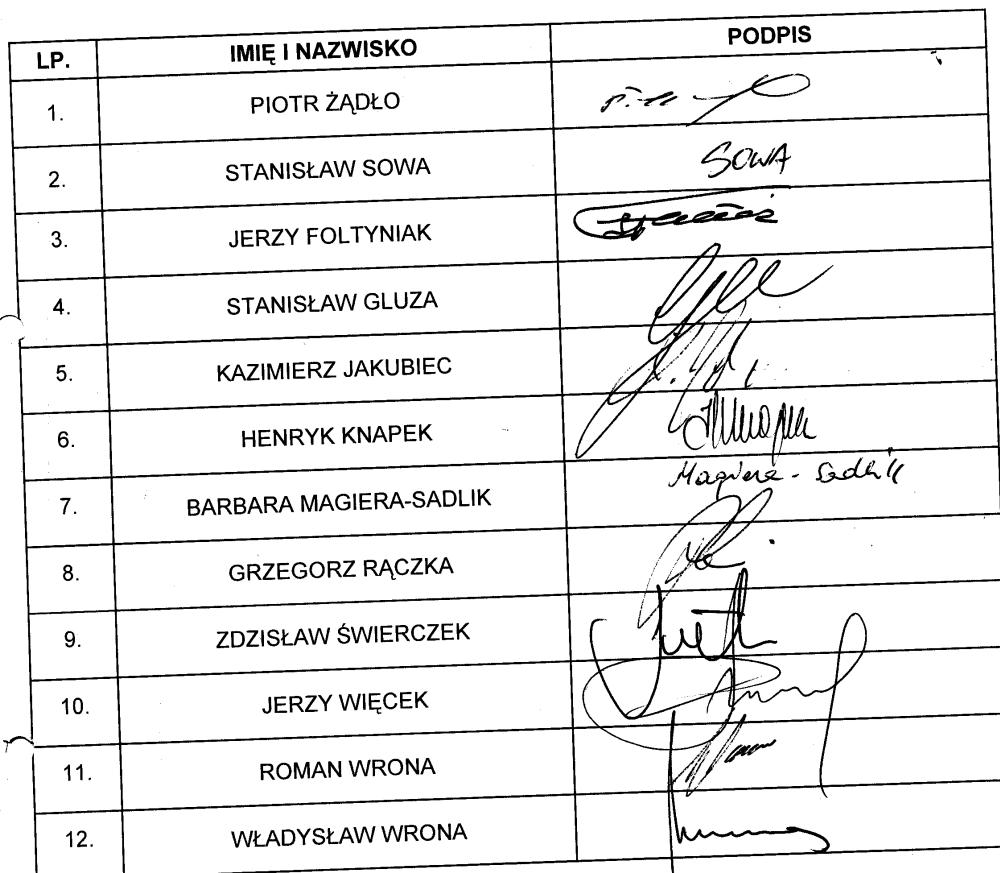 LP. IMIĘ I NAZWISKO PODPIS
1. PIOTR ŻĄDŁO
2. STANISŁAW SOWA SOWA
3. JERZY FOLTYNIAK
4. STANISŁAW GLUZA
5. KAZIMIERZ JAKUBIEC
6. HENRYK KNAPEK
7. BARBARA MAGIERA-SADLIK Magiera-Sadlik
8. GRZEGORZ RĄCZKA
9. ZDZISŁAW ŚWIERCZEK
10. JERZY WIĘCEK
11. ROMAN WRONA
12. WŁADYSŁAW WRONA